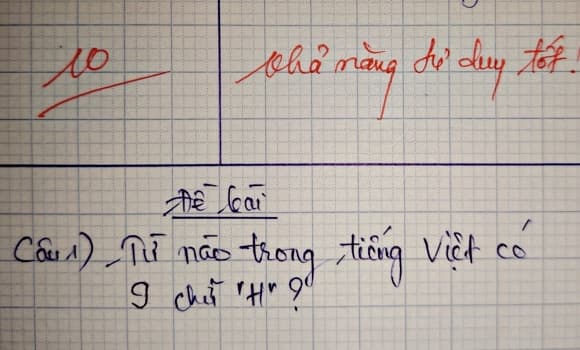 10
Khả năng tư duy tốt!
Đề bài
Câu 1) Từ nào trong tiếng Việt có
9 chữ "H"?